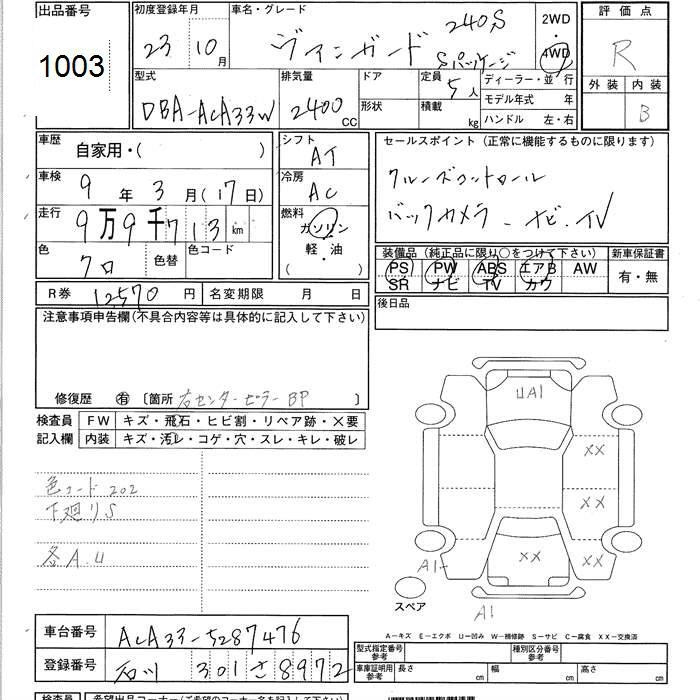 出品番号
1003
初度登録年月
23 10月
車名・グレード
ヴァンガード
240S
Sパッケージ
2WD
4WD
評価点
R
外装 内装
B
型式
DBA-ACA33W
排気量
2400cc
ドア
形状
定員
5人
積載
kg
ディーラー・並 行
モデル年式 年
ハンドル 左・右
車歴
自家用・( )
シフト
AT
車検
9年 3月(17日)
冷房
AC
走行
9万9千713km
燃料
ガソリン
軽・油
( )
色
クロ
色替
色コード
セールスポイント (正常に機能するものに限ります)
クルーズコントロール
バックカメラ - ナビ. TV
装備品 (純正品に限り○をつけて下さい)
PS PW ABS エアB AW
SR ナビ TV カワ
新車保証書
有・無
R券 12,570円
名変期限 月 日
後日品
注意事項申告欄(不具合内容等は具体的に記入して下さい)
修復歴 有 〔箇所 右センターピラー BP 〕
検査員
記入欄
FW キズ・飛石・ヒビ割・リペア跡・X要
内装 キズ・汚レ・コゲ・穴・スレ・キレ・破レ
色コード 202
下廻りS
各A.U
UA1
XX
XX
XX
XX
A1
A1
スペア
A－キズ E－エクボ U－凹み W－補修跡 S－サビ C－腐食 XX－交換済
車台番号
ACA33-5287476
登録番号
石川 301 さ 8972
型式指定番号
参考
種別区分番号
参考
車庫証明用
参考
長さ cm
幅 cm
高さ cm
検査員
希望出品コーナー(ご希望のコーナー名を記入